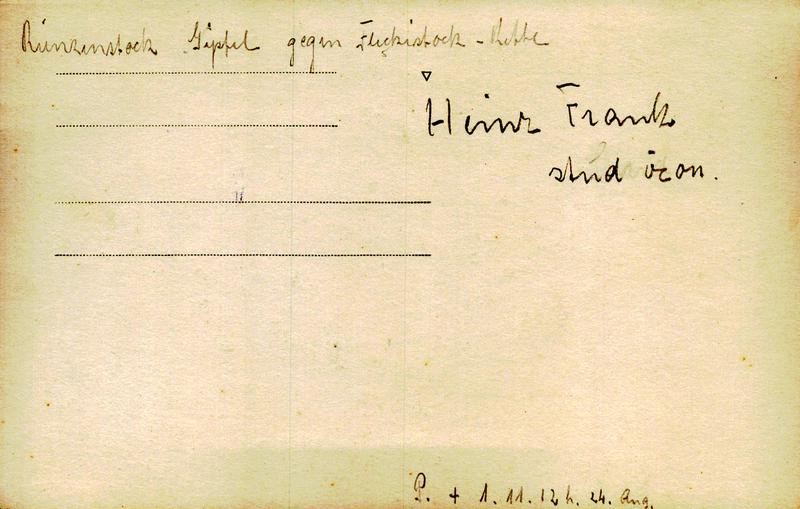 Rienzenstock Gipfel gegen Fleckistock - Kette
Heinz Frank
stud öcon.
P. + 1. 11. 12 h. 24. Aug.